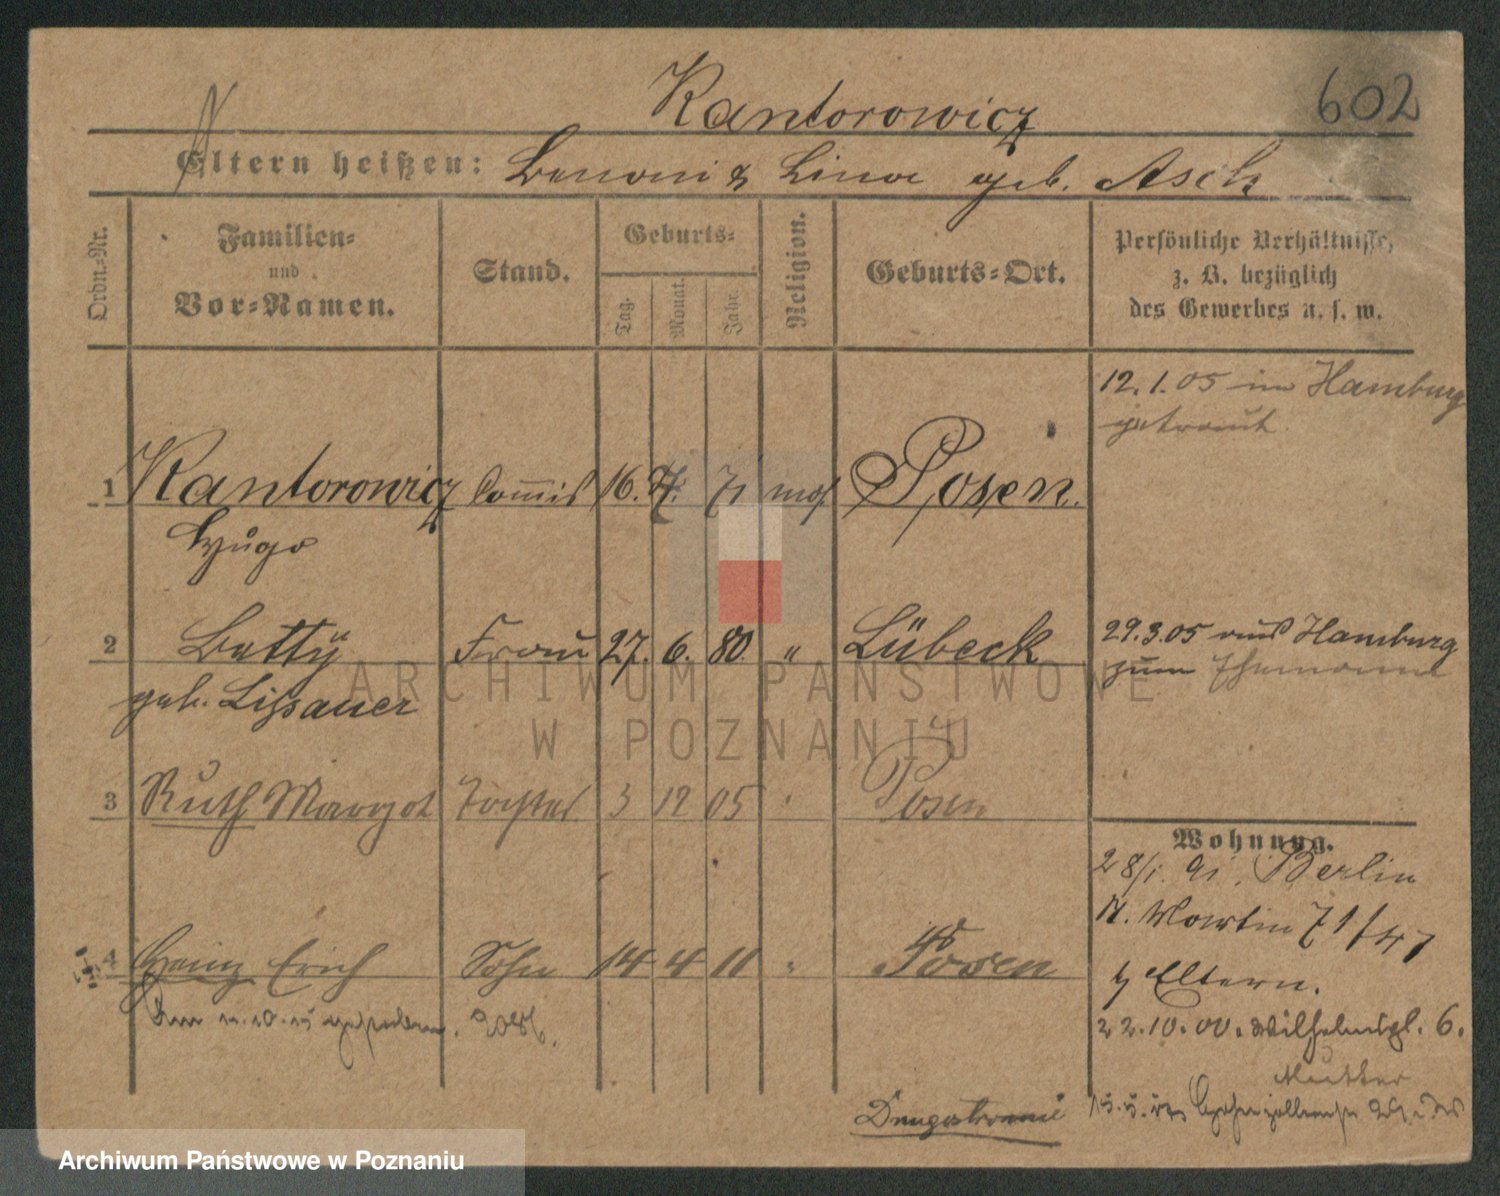 Kantorowicz
602
Eltern heißen: Benoni & Lina geb. Asch
Ordn.-Nr.
Familien-
und
Vor-Namen.
Stand.
Geburts-
Tag.
Monat.
Jahr.
Religion.
Geburts-Ort.
Persönliche Verhältnisse,
z. B. bezüglich
des Gewerbes u. s. w.
12.1.05 in Hamburg
getraut
1 Kantorowicz Commis 16. 7. 71 mos. Posen.
Hugo
2 Betty Frau 27. 6. 80. " Lübeck
geb. Lissauer
29.3.05 aus Hamburg
zum Ehemann
3 Ruth Margot Tochter 3 12 05 " Posen
Wohnung.
28/1. 91. Berlin
St. Martin 71/47
b/ Eltern.
4 Heinz Erich Sohn 14 4 11 " Posen
22.10.00. Wilhelmspl. 6.
Mutter
Drugostronnie
ARCHIWUM PAŃSTWOWE
W POZNANIU
Archiwum Państwowe w Poznaniu